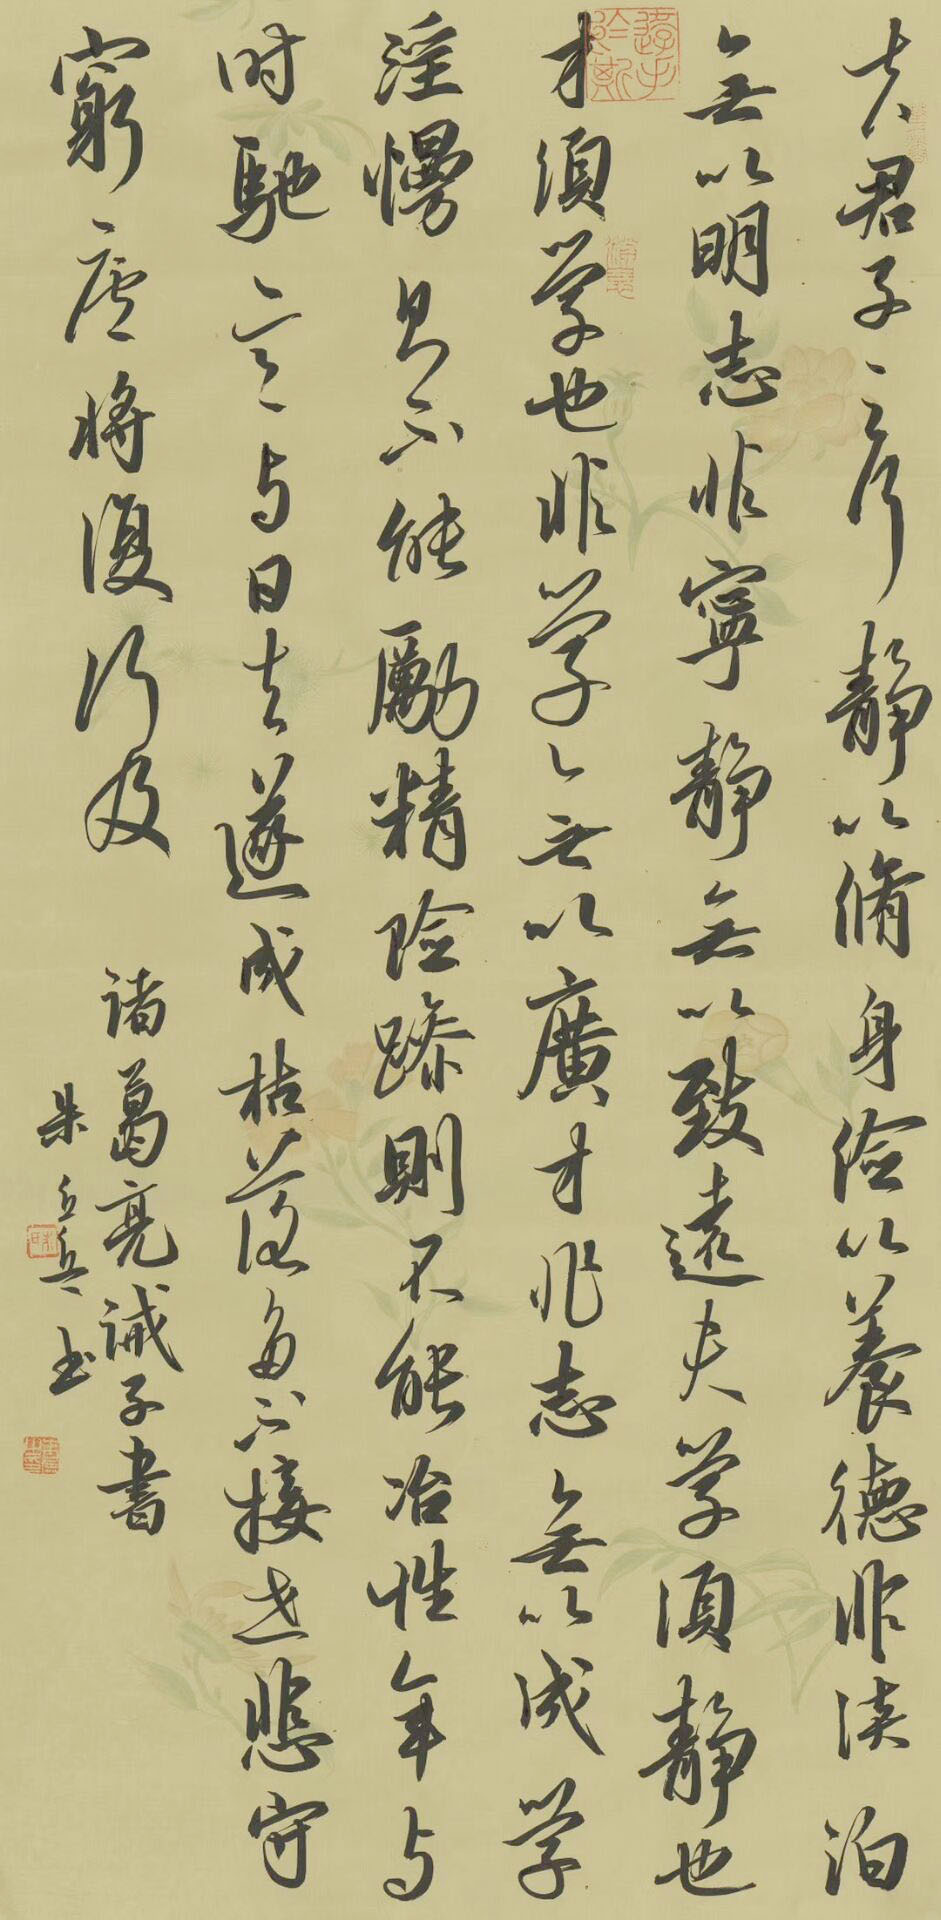 夫君子之行静以脩身儉以養德非淡泊
無以明志非寧静無以致遠夫学須静也
才須学也非学無以廣才非志無以成学
淫慢則不能勵精險躁則不能冶性年与
时馳意与日去遂成枯落多不接世悲守
窮廬將復何及
诸葛亮诫子書
朱书